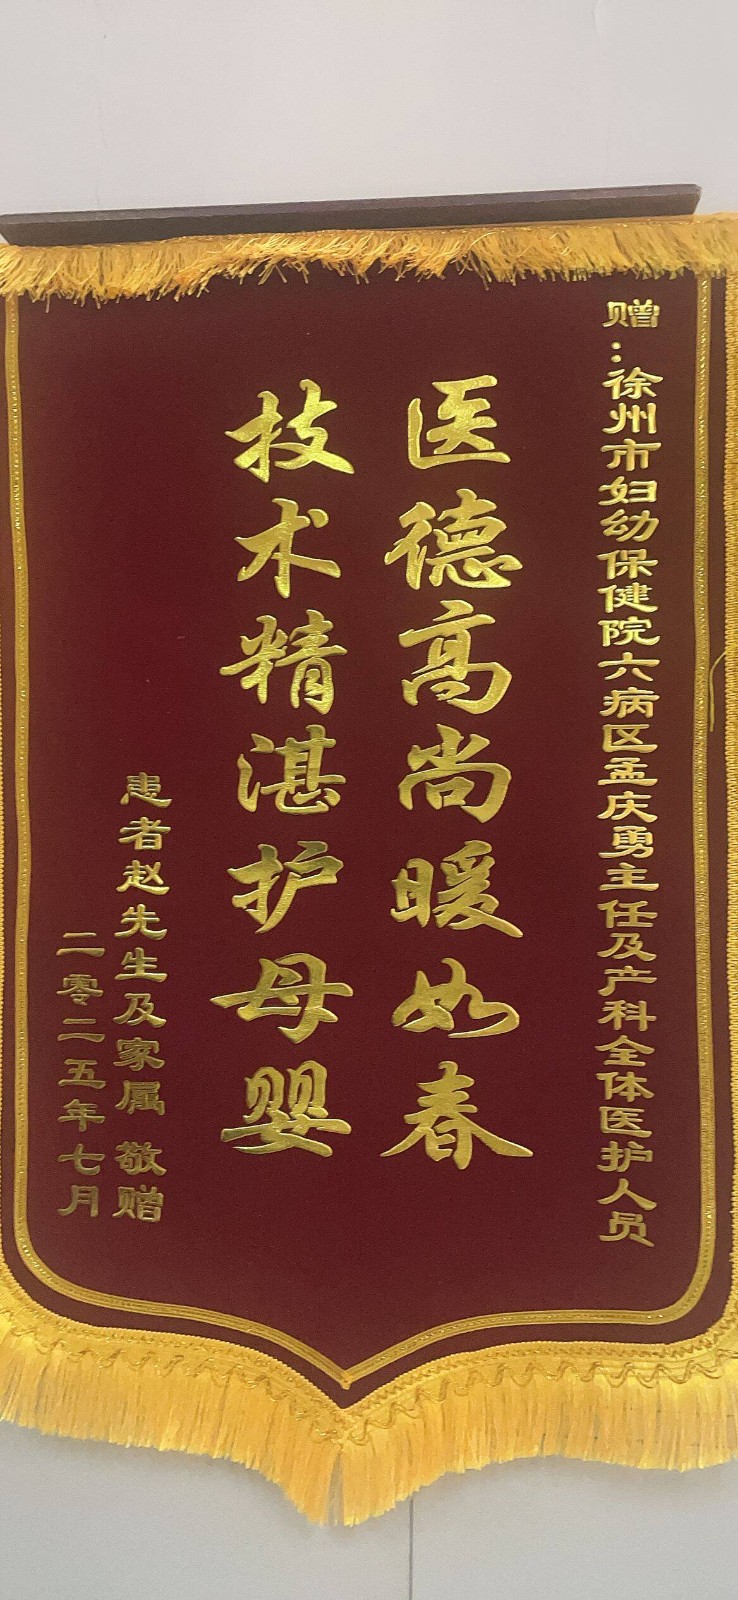 赠：徐州市妇幼保健院六病区孟庆勇主任及产科全体医护人员
医德高尚暖如春
技术精湛护母婴
患者赵先生及家属 敬赠
二零二五年七月